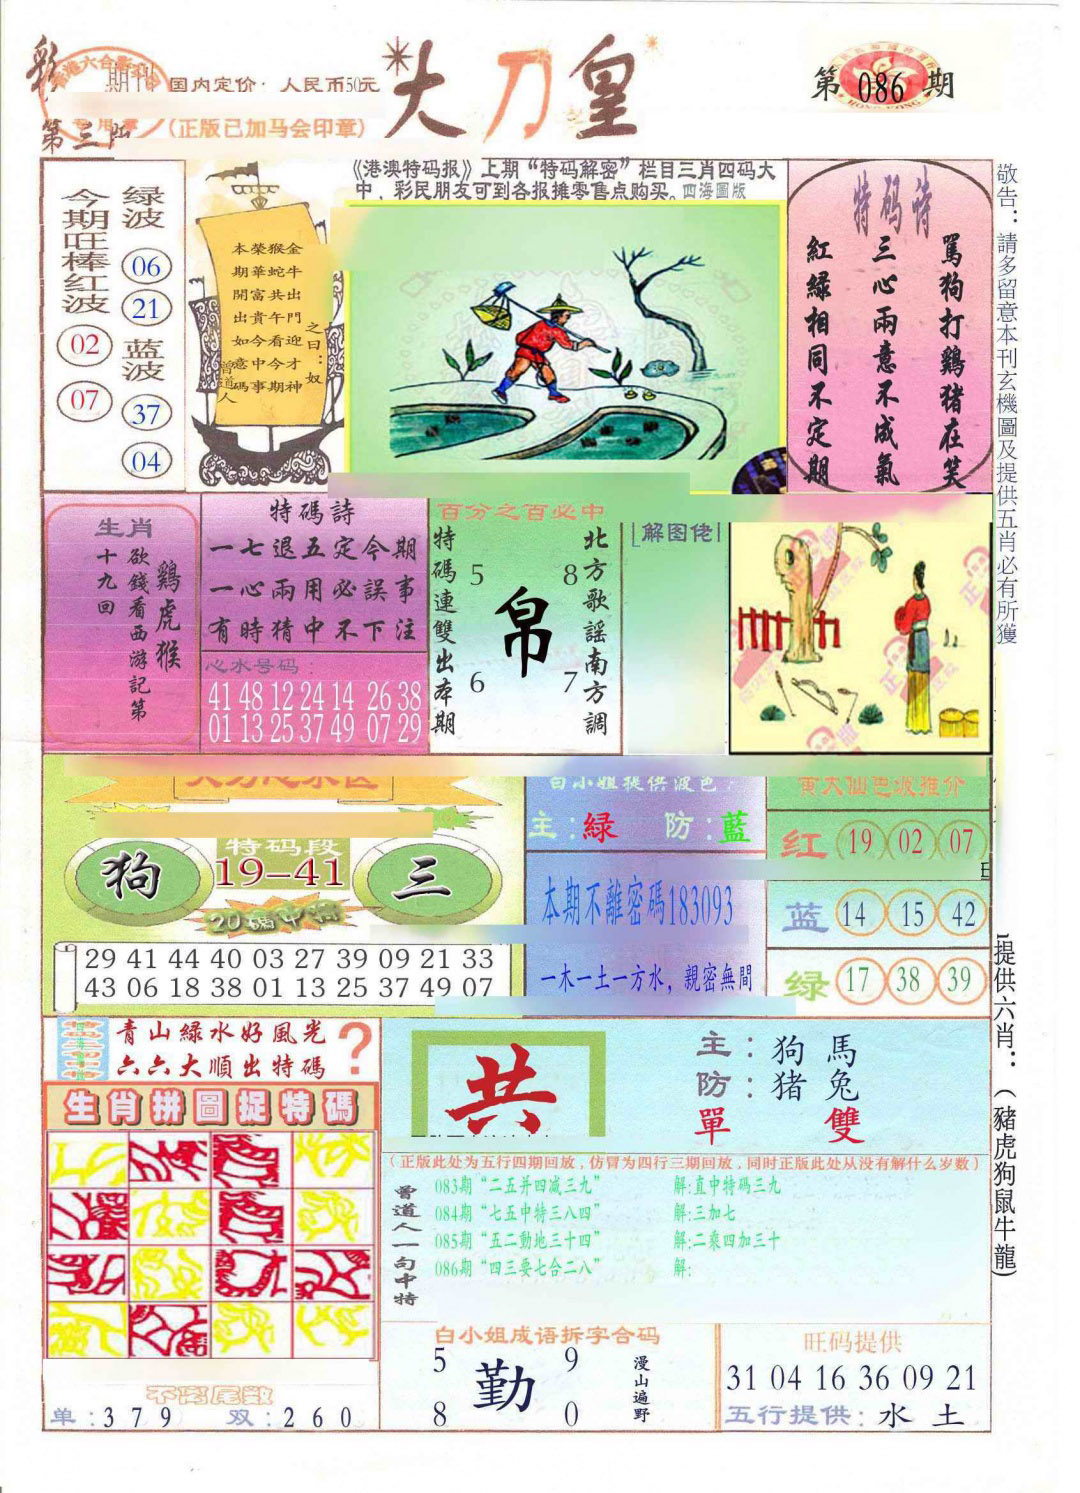 彩
期刊
国内定价：人民币50元
第三版
(正版已加马会印章)
大刀皇
第086期
今期旺棒红波
02
07
绿波
06
21
蓝波
37
04
金牛出門迎才神
猴蛇共午看今期
榮華富貴今中事
本期開出如意碼
曾道人
之曰：奴
《港澳特码报》上期“特码解密”栏目三肖四码大
中，彩民朋友可到各报摊零售点购买。四海圖版
特码诗
罵狗打鷄猪在笑
三心兩意不成氣
紅緑相同不定期
敬告：請多留意本刊玄機圖及提供五肖必有所獲
生肖
鷄虎猴
欲錢看西游記第
十九回
特碼詩
一七退五定今期
一心兩用必誤事
有時猜中不下注
心水号码：
41 48 12 24 14 26 38
01 13 25 37 49 07 29
百分之百必中
特碼連雙出本期
5 8
帛
6 7
北方歌謡南方調
解图佬
狗
特码段
19-41
三
20碼中特
29 41 44 40 03 27 39 09 21 33
43 06 18 38 01 13 25 37 49 07
白小姐提供波色
主：緑 防：藍
本期不離密碼183093
一木一土一方水，親密無間
黄大仙色波推介
红 19 02 07
蓝 14 15 42
绿 17 38 39
提供六肖：（豬虎狗鼠牛龍）
青山緑水好風光
六六大順出特碼
?
生肖拼圖捉特碼
不离尾数
单：379 双：260
共
主：狗 馬
防：猪 兔
單 雙
（正版此处为五行四期回放，仿冒为四行三期回放，同时正版此处从没有解什么岁数）
曾道人一句中特
083期“二五并四减三九” 解：直中特碼三九
084期“七五中特三八四” 解：三加七
085期“五二動地三十四” 解：二乘四加三十
086期“四三要七合二八” 解：
白小姐成语拆字合码
5 9
勤
8 0
漫山遍野
旺码提供
31 04 16 36 09 21
五行提供：水 土